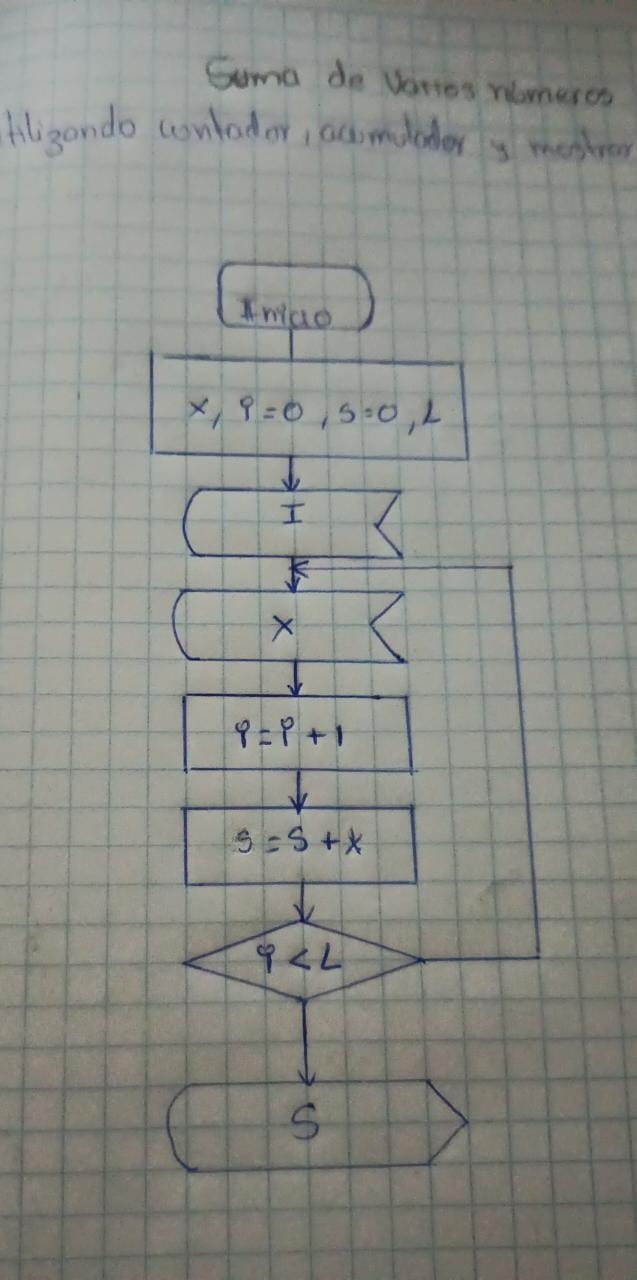 Suma de varios números
tilizando contador, acumulador y mostrar
Inicio
X, P=0, S=0, L
I
X
P=P+1
S=S+X
P<L
S